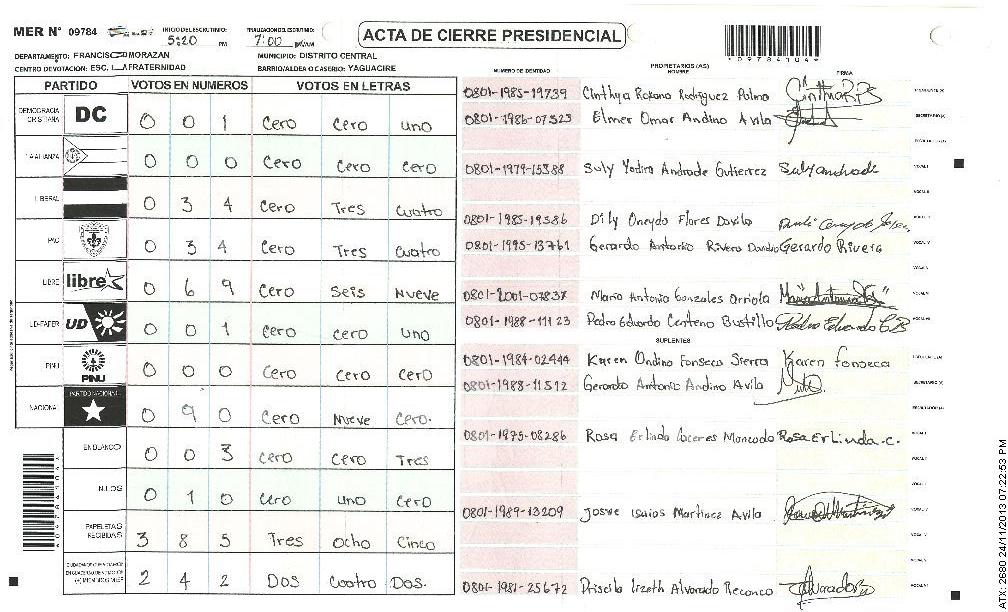 MER N° 09784
INICIO DEL ESCRUTINIO: 5:20 PM
FINALIZACION DEL ESCRUTINIO: 7:00 PM/AM
ACTA DE CIERRE PRESIDENCIAL
DEPARTAMENTO: FRANCISCO MORAZAN MUNICIPIO: DISTRITO CENTRAL
CENTRO DE VOTACION: ESC. LA FRATERNIDAD BARRIO/ALDEA O CASERIO: YAGUACIRE
PARTIDO VOTOS EN NUMEROS VOTOS EN LETRAS
DEMOCRACIA CRISTIANA DC 0 0 1 Cero Cero uno
LA ALIANZA 0 0 0 Cero Cero Cero
LIBERAL 0 3 4 Cero Tres Cuatro
PAC 0 3 4 Cero Tres Cuatro
LIBRE libre 0 6 9 Cero Seis Nueve
UD-FAPER UD 0 0 1 Cero Cero uno
PINU PINU 0 0 0 Cero Cero Cero
NACIONAL PARTIDO NACIONAL 0 9 0 Cero Nueve Cero.
EN BLANCO 0 0 3 Cero Cero Tres
NULOS 0 1 0 Cero uno Cero
PAPELETAS RECIBIDAS 3 8 5 Tres Ocho Cinco
2 4 2 Dos Cuatro Dos.
NUMERO DE IDENTIDAD PROPIETARIOS (AS) NOMBRE FIRMA
*09784104*
0801-1985-19739 Cinthya Roxana Rodriguez Palma
0801-1986-07523 Elmer Omar Andino Avila
0801-1979-15388 Suly Yadira Andrade Gutierrez Suly andrade
0801-1985-19586 Dily Oneyda Flores Davila
0801-1995-13761 Gerardo Antonio Rivera Gerardo Rivera
0801-2001-07837 Mario Antonio Gonzales Arriola
0801-1988-11123 Pedro Eduardo Centeno Bustillo Pedro Eduardo C B
SUPLENTES
0801-1984-02444 Karen Ondina Fonseca Sierra Karen Fonseca
0801-1988-11512 Gerardo Antonio Andino Avila
0801-1975-08286 Rosa Erlinda Caceres Moncada Rosa Erlinda.C.
0801-1989-13209 Josue Isaias Martinez Avila
0801-1981-25672 Priscila Lizeth Alvarado Reconco
ATX-2690 24/11/2013 07:22:53 PM